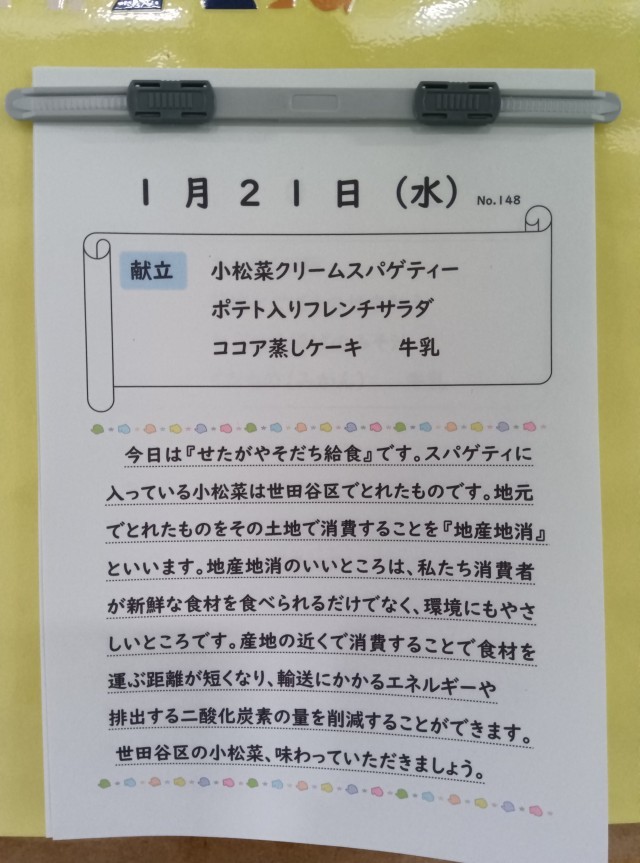 1月21日（水） No.148
献立 小松菜クリームスパゲティー
ポテト入りフレンチサラダ
ココア蒸しケーキ 牛乳
今日は『せたがやそだち給食』です。スパゲティに
入っている小松菜は世田谷区でとれたものです。地元
でとれたものをその土地で消費することを『地産地消』
といいます。地産地消のいいところは、私たち消費者
が新鮮な食材を食べられるだけでなく、環境にもやさ
しいところです。産地の近くで消費することで食材を
運ぶ距離が短くなり、輸送にかかるエネルギーや
排出する二酸化炭素の量を削減することができます。
世田谷区の小松菜、味わっていただきましょう。